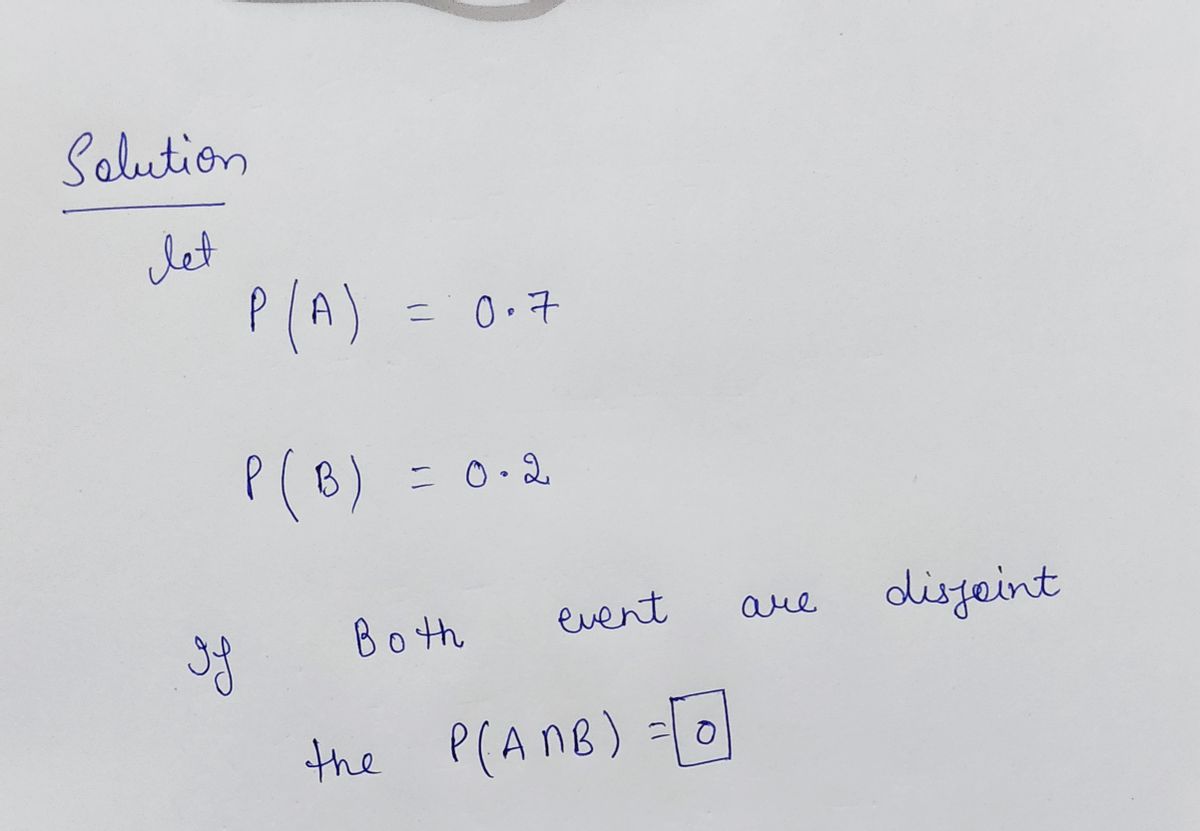 Solution
let
P(A) = 0.7
P(B) = 0.2
If Both event are disjoint
the P(A∩B) = 0